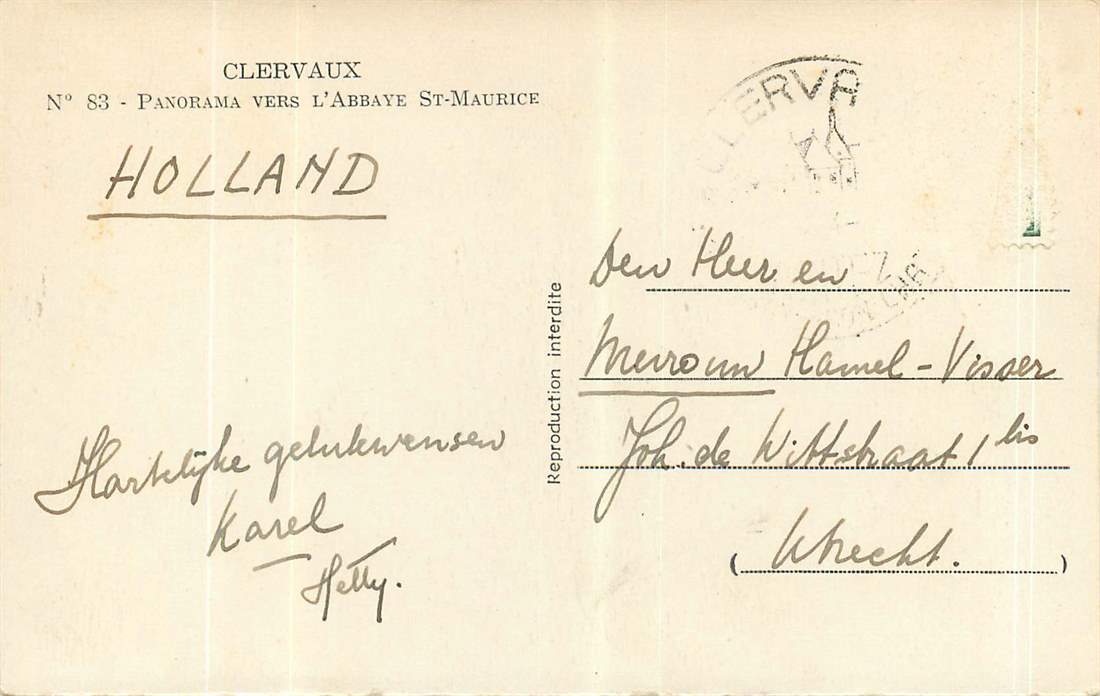 CLERVAUX
N° 83 - PANORAMA VERS L'ABBAYE ST-MAURICE
HOLLAND
CLERVA
Den Heer en
Mevrouw Hamel-Visser
Joh. de Wittstraat 1 bis
Utrecht.
Reproduction interdite
Hartelijke gelukwensen
Karel
Hetty.